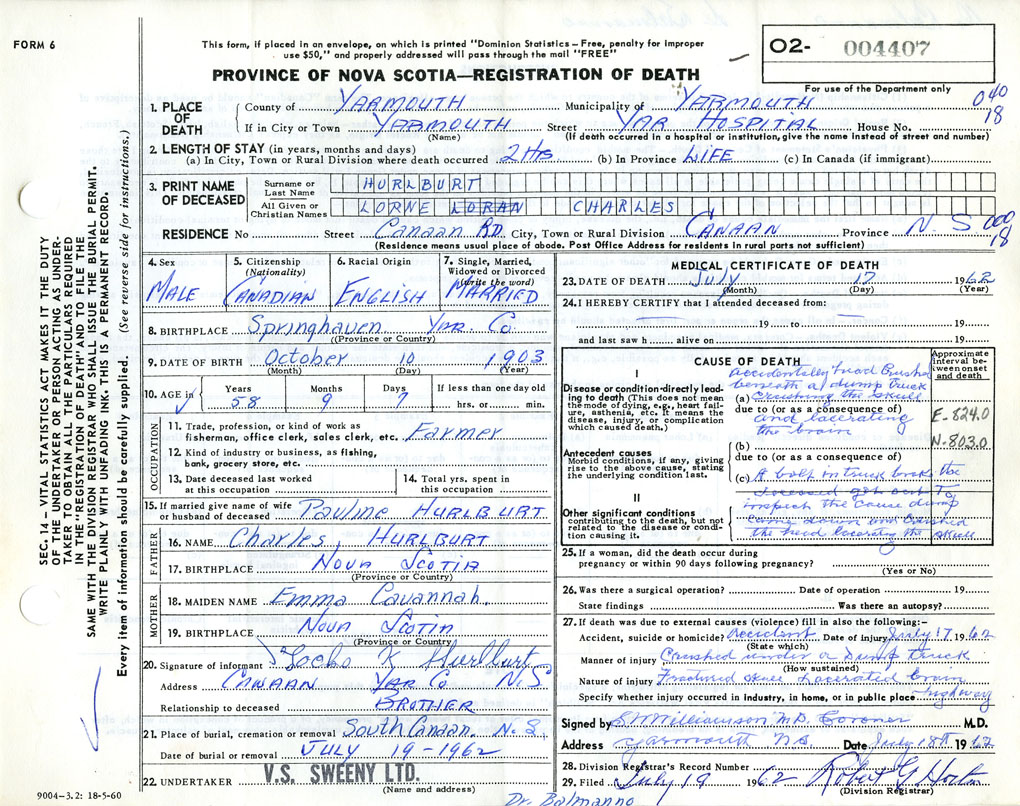 FORM 6
This form, if placed in an envelope, on which is printed "Dominion Statistics – Free, penalty for improper
use $50," and properly addressed will pass through the mail "FREE"
O2- 004407
PROVINCE OF NOVA SCOTIA—REGISTRATION OF DEATH
For use of the Department only
1. PLACE OF DEATH
County of YARMOUTH Municipality of YARMOUTH 040
If in City or Town YARMOUTH Street YAR HOSPITAL House No. 18
(Name) (If death occurred in a hospital or institution, give the name instead of street and number)
2. LENGTH OF STAY (in years, months and days)
(a) In City, Town or Rural Division where death occurred 2 HRS (b) In Province LIFE (c) In Canada (if immigrant)
3. PRINT NAME OF DECEASED
Surname or Last Name HURLBURT
All Given or Christian Names LORNE LORAN CHARLES
RESIDENCE No Street Canaan RD. City, Town or Rural Division CANAAN Province N. S 000
18
(Residence means usual place of abode. Post Office Address for residents in rural parts not sufficient)
4. Sex MALE
5. Citizenship (Nationality) CANADIAN
6. Racial Origin ENGLISH
7. Single, Married, Widowed or Divorced (Write the word) MARRIED
8. BIRTHPLACE Springhaven YAR. Co
(Province or Country)
9. DATE OF BIRTH October 10 1903
(Month) (Day) (Year)
10. AGE in Years 58 Months 9 Days 7 If less than one day old hrs. or min.
OCCUPATION
11. Trade, profession, or kind of work as fisherman, office clerk, sales clerk, etc. Farmer
12. Kind of industry or business, as fishing, bank, grocery store, etc.
13. Date deceased last worked at this occupation
14. Total yrs. spent in this occupation
15. If married give name of wife or husband of deceased Pauline HURLBURT
FATHER
16. NAME Charles HURLBURT
17. BIRTHPLACE NOVA SCOTIA
(Province or Country)
MOTHER
18. MAIDEN NAME Emma Cavannah.
19. BIRTHPLACE NOVA SCOTIA
(Province or Country)
20. Signature of informant K Hurlburt
Address CANAAN YAR Co N.S
Relationship to deceased BROTHER
21. Place of burial, cremation or removal South Canaan N.S
Date of burial or removal JULY 19-1962
22. UNDERTAKER V.S. SWEENY LTD.
(Name and address)
MEDICAL CERTIFICATE OF DEATH
23. DATE OF DEATH July 17 1962
(Month) (Day) (Year)
24. I HEREBY CERTIFY that I attended deceased from:
19 to 19
and last saw h alive on 19
CAUSE OF DEATH
Approximate interval between onset and death
I
Disease or condition directly leading to death (This does not mean the mode of dying, e.g., heart failure, asthenia, etc. It means the disease, injury, or complication which caused death.)
accidentally head crushed
beneath a dump truck
(a) crushing the skull
due to (or as a consequence of)
and lacerating
the brain
E-824.0
N-803.0
Antecedent causes
Morbid conditions, if any, giving rise to the above cause, stating the underlying condition last.
(b)
due to (or as a consequence of)
(c) A bolt in truck broke the
deceased got out to
inspect the cause dump
came down and crushed
the head lacerating the skull
II
Other significant conditions
contributing to the death, but not related to the disease or condition causing it.
25. If a woman, did the death occur during
pregnancy or within 90 days following pregnancy?
(Yes or No)
26. Was there a surgical operation? Date of operation 19
State findings Was there an autopsy?
27. If death was due to external causes (violence) fill in also the following:–
Accident, suicide or homicide? Accident Date of injury July 17 1962
(State which)
Manner of injury Crushed under a Dump truck
(How sustained)
Nature of injury Fractured skull Lacerated brain
Specify whether injury occurred in industry, in home, or in public place highway
Signed by Williamson M.D. Coroner M.D.
Address Yarmouth N.S. Date July 18th 1962
28. Division Registrar's Record Number
29. Filed July 19 1962 Robert G Horton
(Division Registrar)
Dr. Balmanno
9004-3.2: 18-5-60
SEC. 14 – VITAL STATISTICS ACT MAKES IT THE DUTY
OF THE UNDERTAKER OR PERSON ACTING AS UNDERTAKER TO OBTAIN ALL THE PARTICULARS REQUIRED
IN THE "REGISTRATION OF DEATH" AND TO FILE THE
SAME WITH THE DIVISION REGISTRAR WHO SHALL ISSUE THE BURIAL PERMIT.
WRITE PLAINLY WITH UNFADING INK. THIS IS A PERMANENT RECORD.
Every item of information should be carefully supplied. (See reverse side for instructions.)